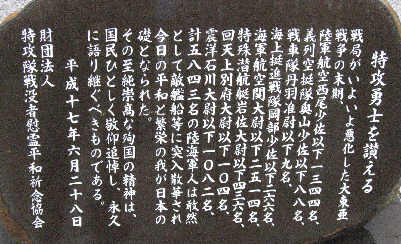 特攻勇士を讃える
戦局がいよいよ悪化した大東亜
戦争の末期、
陸軍航空西尾少佐以下一三四四名、
義烈空挺隊奥山少佐以下八八名、
戦車隊丹羽准尉以下九名、
海上挺進戦隊岡部少佐以下二六六名、
海軍航空関大尉以下二五一四名、
特殊潜航艇岩佐大尉以下四三六名、
回天上別府大尉以下一〇四名、
震洋石川大尉以下一〇八二名、
計五八四三名の陸海軍人は敢然
として敵艦船等に突入散華され
今日の平和と繁栄の我が日本の
礎となられた。
その至純崇高な殉国の精神は、
国民ひとしく敬仰追悼し永久
に語り継ぐべきものである。
平成十七年六月二十八日
財団法人
特攻隊戦没者慰霊平和祈念協会